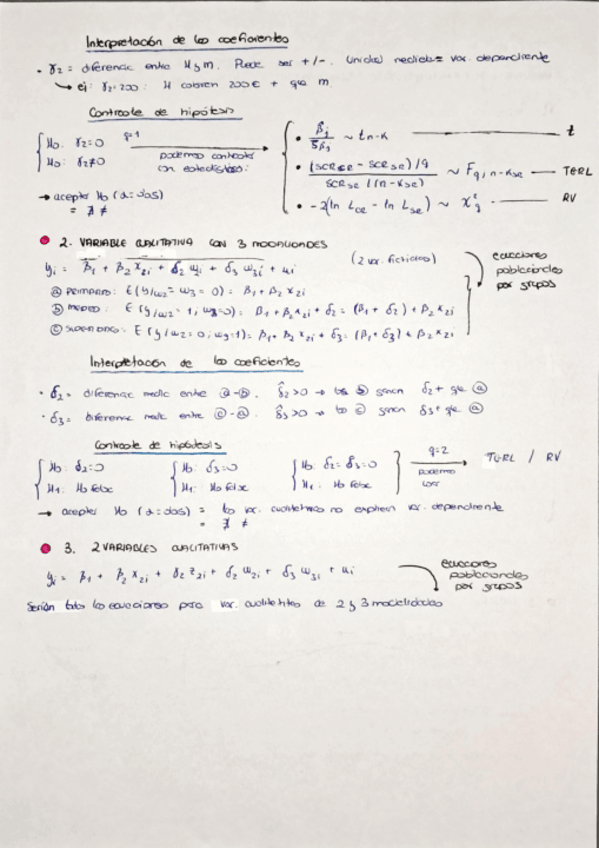 Interpretación de los coeficientes
• γ2 = diferencia entre H y M. Puede ser +/-. Unidad medida = var. dependiente
↳ ej: γ2=200: H cobran 200€ + que M
Contraste de hipótesis
{ H0: γ2=0 q=1
H0: γ2≠0 podemos contrastar con estadísticos:
{ • β̂j / Sβ̂j ~ tn-k — t
• (SCRCE - SCRSE)/q / SCRSE/(n-kSE) ~ Fq, n-kSE — TERL
• -2(ln LCE - ln LSE) ~ χ²q — RV
→ aceptar H0 (a=dos)
= ∄ ≠
2. VARIABLE CUALITATIVA CON 3 MODALIDADES
yi = β1 + β2 x2i + δ2 w2i + δ3 w3i + ui (2 var. ficticias)
ecuaciones poblacionales por grupos
ⓐ PRIMARIO: E(y/w2 = w3 = 0) = β1 + β2 x2i
ⓑ MEDIO: E(y/w2 = 1, w3=0) = β1 + β2 x2i + δ2 = (β1 + δ2) + β2 x2i
ⓒ E(y/w2 = 0, w3=1) = β1 + β2 x2i + δ3 = (β1 + δ3) + β2 x2i
Interpretación de los coeficientes
• δ2 = diferencia media entre ⓐ-ⓑ. δ̂2>0 → los ⓑ ganan δ2 + que ⓐ
• δ3 = diferencia media entre ⓒ-ⓐ. δ̂3>0 → los ⓒ ganan δ3 + que ⓐ
Contraste de hipótesis
{ H0: δ2=0 { H0: δ3=0 { H0: δ2=δ3=0 } q=2 → TERL / RV
H1: H0 falsa H1: H0 falsa H1: H0 falsa podemos usar
→ aceptar H0 (a=dos) = las var. cualitativas no explican var. dependiente
= ∄ ≠
3. 2 VARIABLES CUALITATIVAS
yi = β1 + β2 x2i + γ2 z2i + δ2 w2i + δ3 w3i + ui
ecuaciones poblacionales por grupos
Serían todas las ecuaciones para var. cualitativas de 2 y 3 modalidades